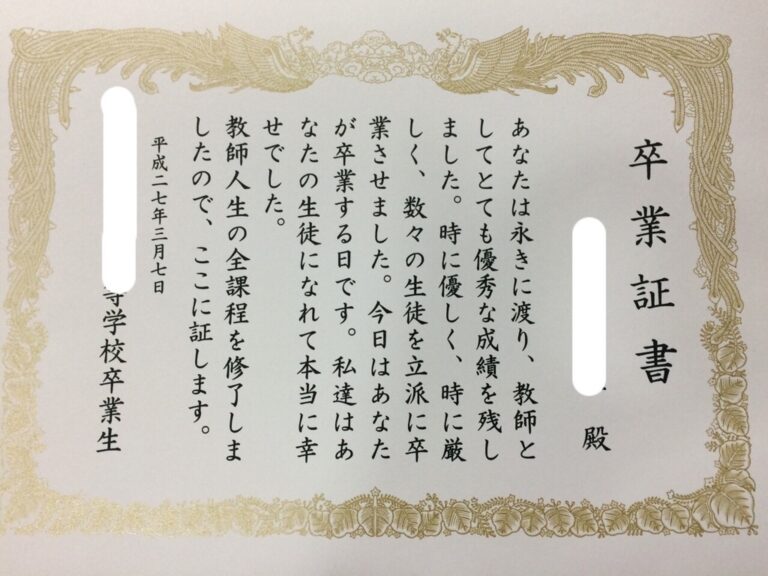 卒業証書
殿
あなたは永きに渡り、教師と
してとても優秀な成績を残し
ました。時に優しく、時に厳
しく、数々の生徒を立派に卒
業させました。今日はあなた
が卒業する日です。私達はあ
なたの生徒になれて本当に幸
せでした。
教師人生の全課程を修了しま
したので、ここに証します。
平成二七年三月七日
等学校卒業生